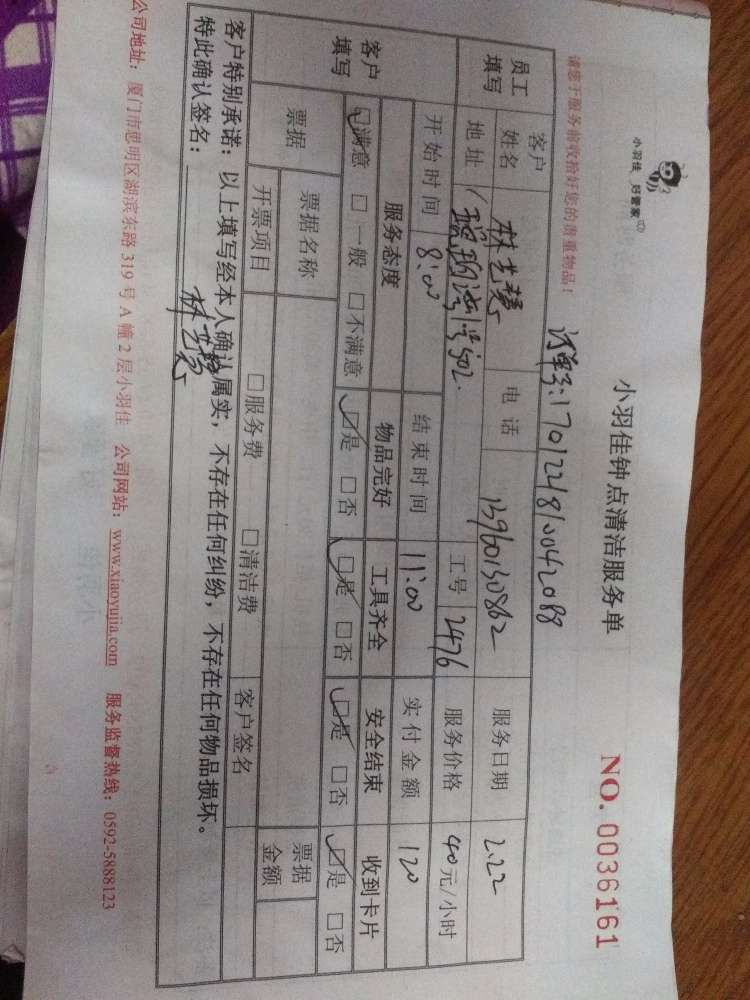 小羽佳 好管家
小羽佳钟点清洁服务单
NO. 0036161
请您于服务前收拾好您的贵重物品!
订单号:1701221810042088
员工填写 客户姓名 林艺 电话 13960130862 服务日期 2.22
地址 502. 工号 2476 服务价格 40元/小时
开始时间 8:00 结束时间 11:00 实付金额 120
客户填写 服务态度 物品完好 工具齐全 安全结束 收到卡片
☑满意 □一般 □不满意 ☑是 □否 ☑是 □否 ☑是 □否 ☑是 □否
票据 票据名称 票据金额
开票项目 □服务费 □清洁费 客户签名
客户特别承诺:以上填写经本人确认属实,不存在任何纠纷,不存在任何物品损坏。
特此确认签名: 林艺
公司地址:厦门市思明区湖滨东路 319 号 A 幢 2 层小羽佳 公司网站:www.xiaoyujia.com 服务监督热线:0592-5888123